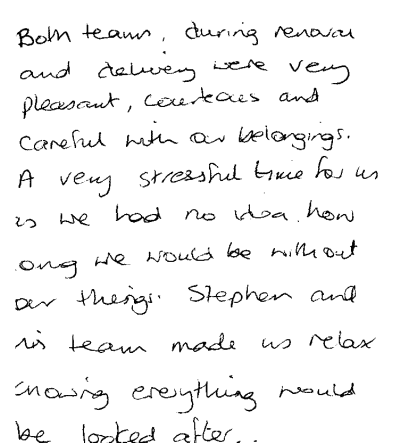 Both teams, during removal
and delivery were very
pleasant, courteous and
careful with our belongings.
A very stressful time for us
as we had no idea how
long we would be without
our things. Stephen and
his team made us relax
knowing everything would
be looked after..